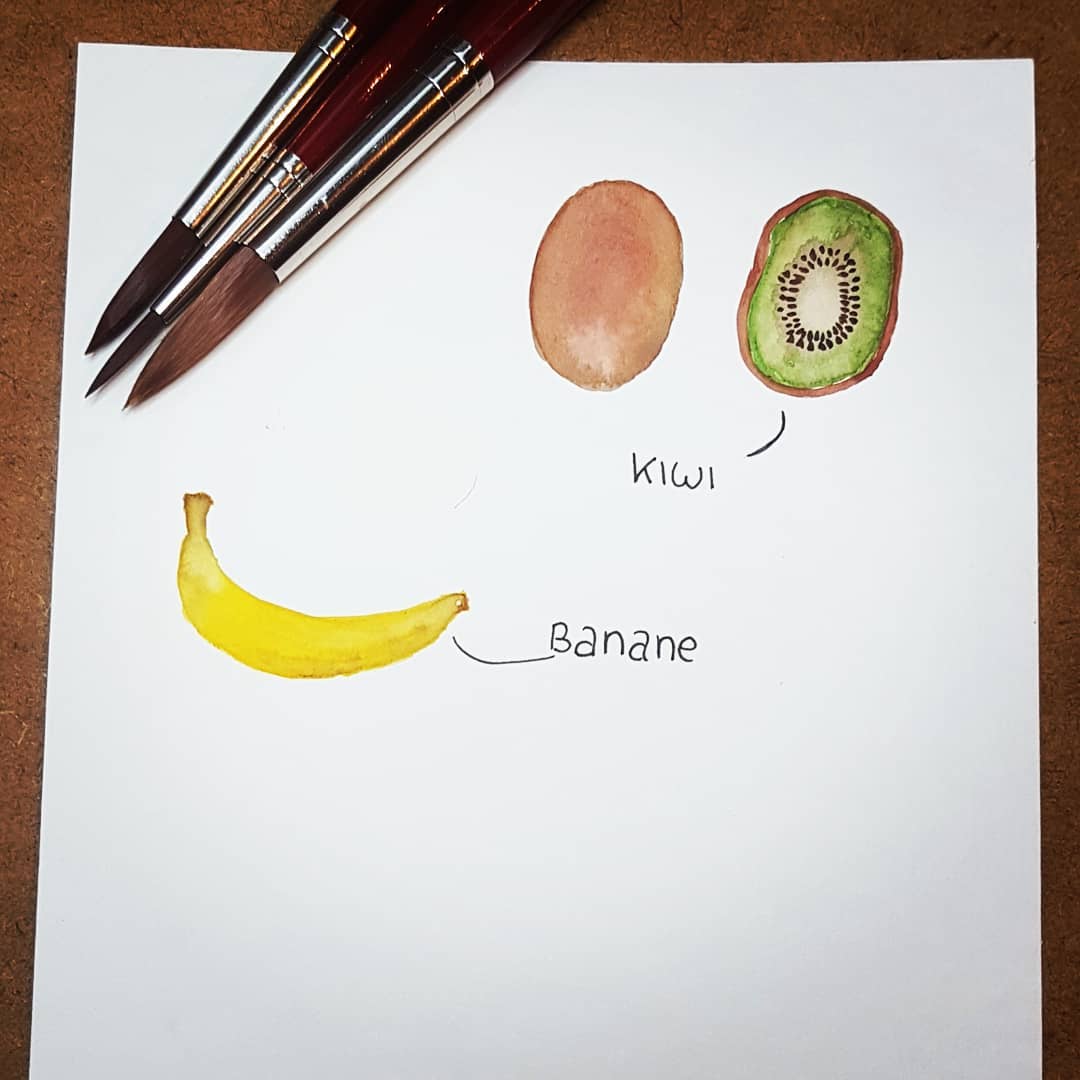 KIWI
Banane